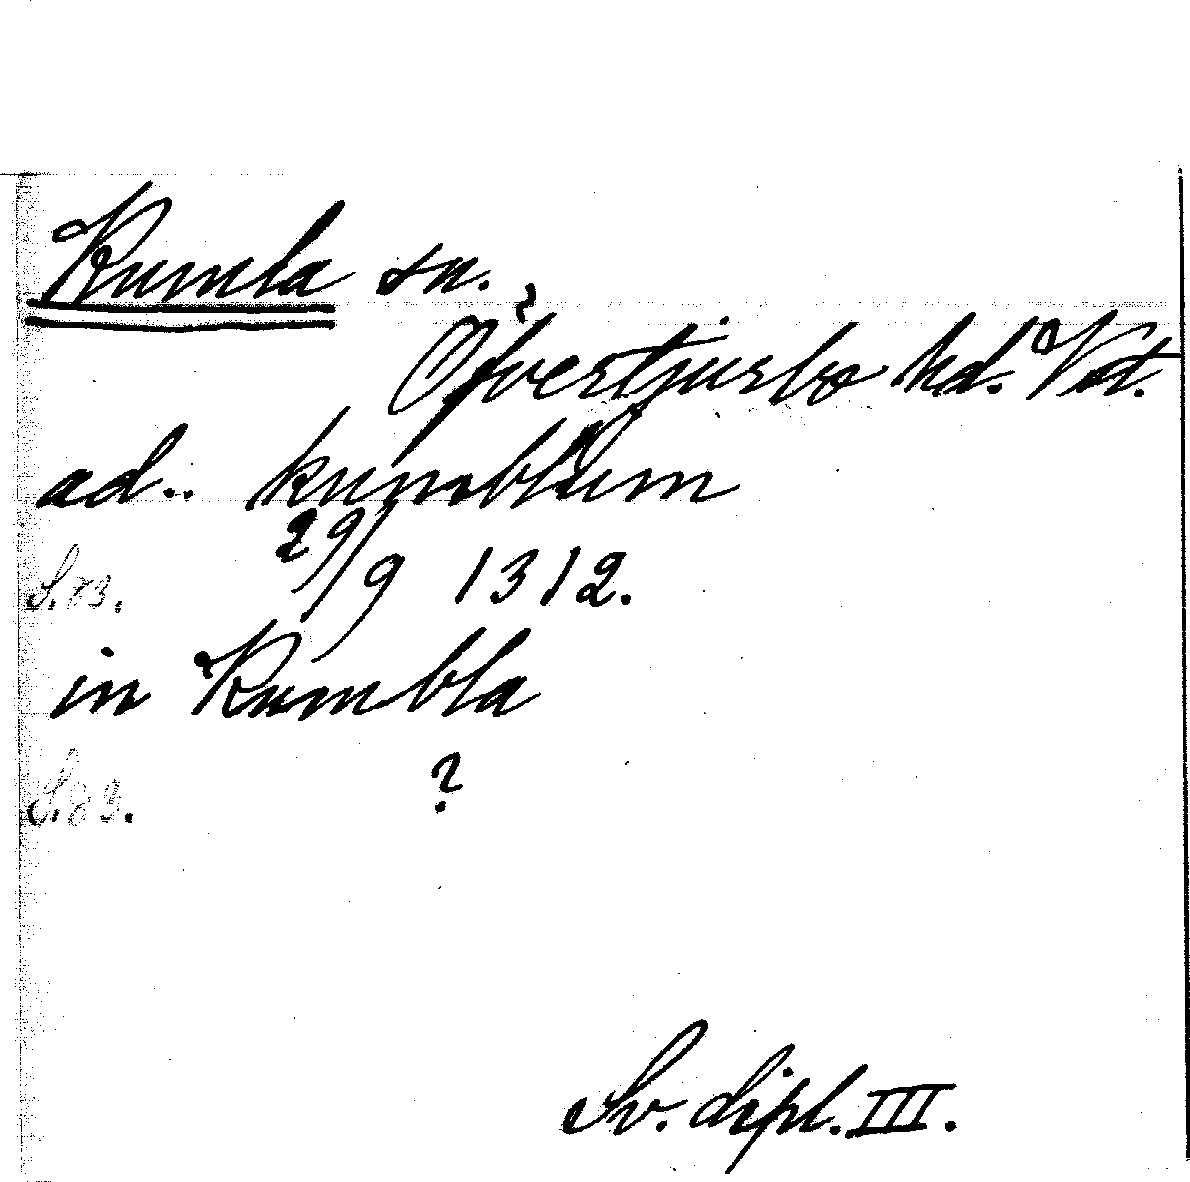 Kumla sn.
Öfvertjurbo hd. Vst.
ad.. kumblum
29/9 1312.
S. 83.
in Kumbla
S. 83.
?
Sv. dipl. III.